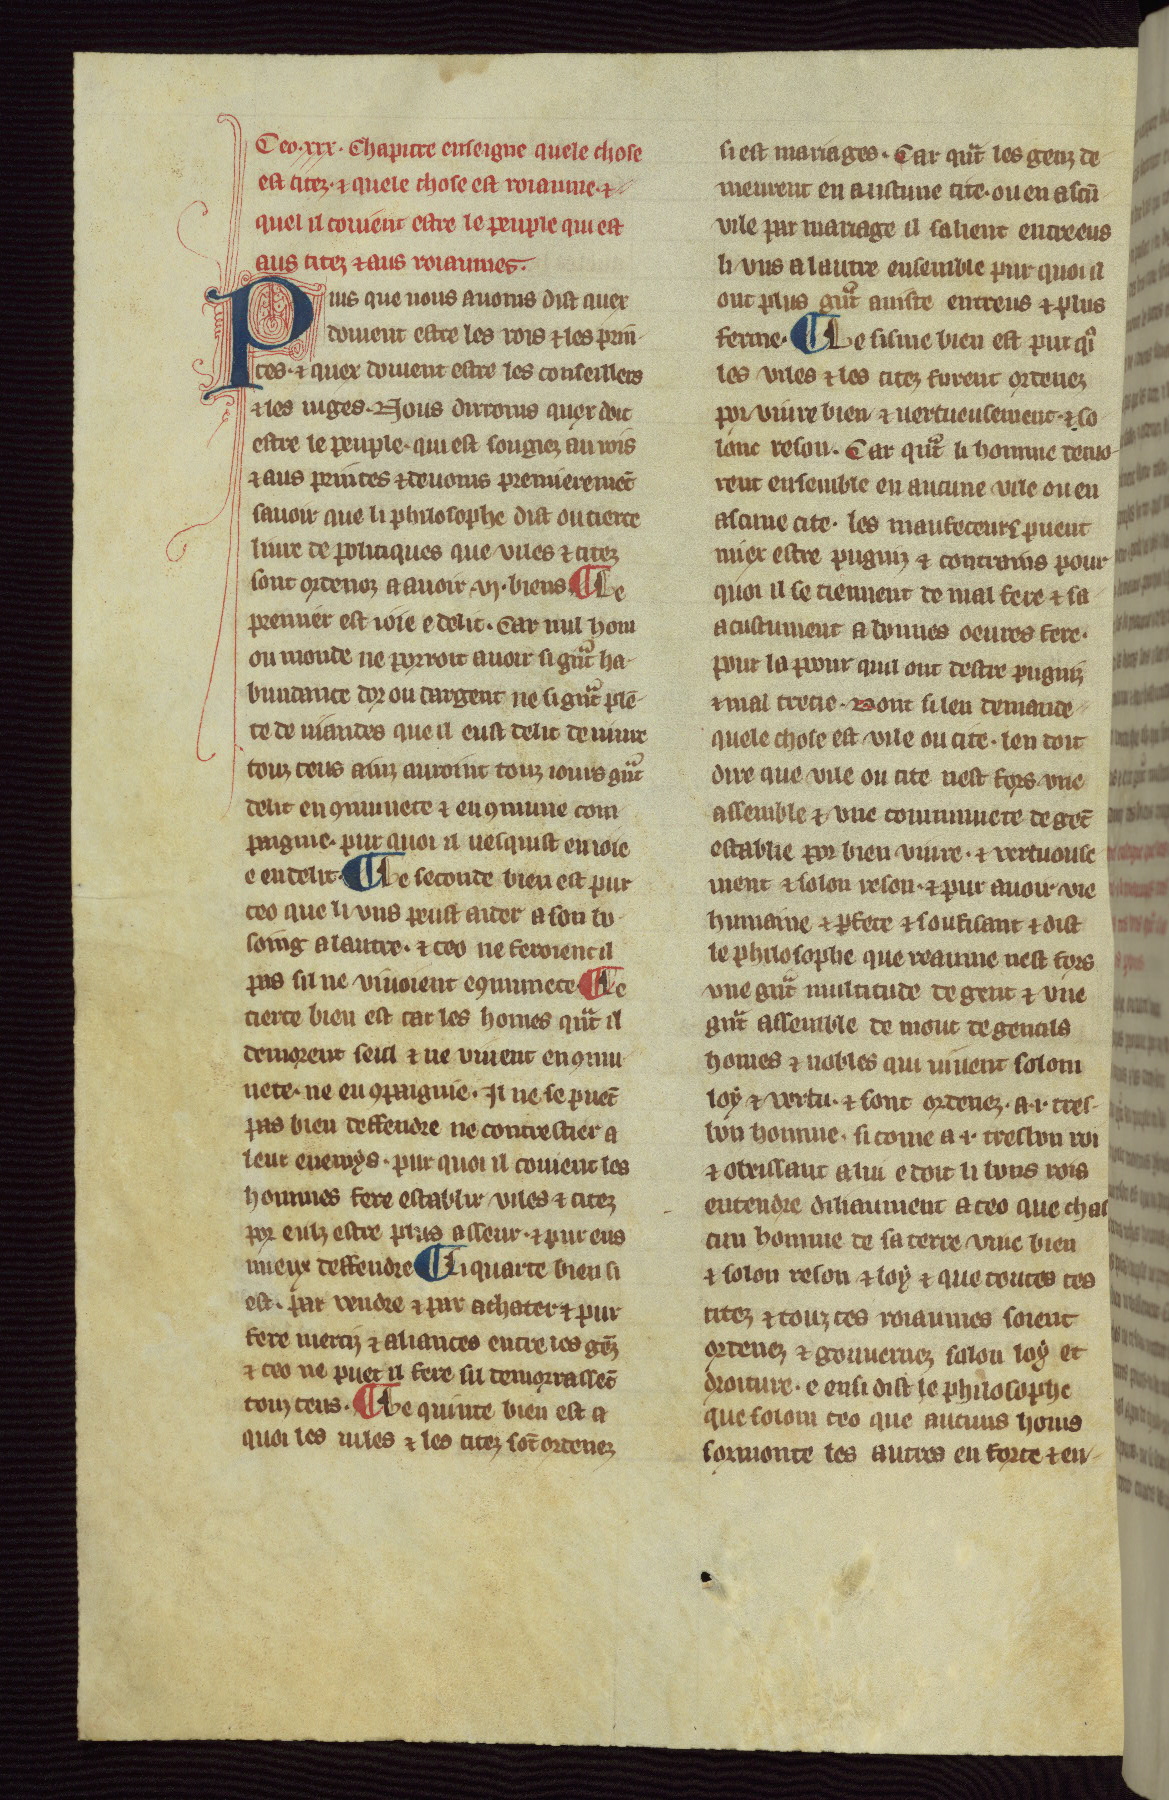 Ceo .xxx. Chapitre enseigne quele chose
est citez. ⁊ quele chose est roiaume. ⁊
quel il couient estre le peuple qui est
aus citez ⁊ aus roiaumes.
Puis que nous auoms dist quex
doiuent estre les rois ⁊ les prin̄
ces. ⁊ quex doiuent estre les conseillers
⁊ les iuges. Nous dirroms quex doit
estre le peuple. qui est sougiez au rois
⁊ aus princes ⁊ deuoms premieremēt
sauoir que li philosophe dist ou tierce
liure de politiques que viles ⁊ citez
sont ordenez a auoir .vj. biens. ¶ Le
premier est ioie e delit. Car nul hom
ou monde ne porroit auoir si gnt̄ ha
bundance dor ou dargent ne si gnt̄ plē
te de viandes que il eust delit de viure
touz tens ainz auroint touz iours gnt̄
delit en ꝯmunete ⁊ en ꝯmune com
paignie. pur quoi il uesquist en ioie
e en delit. ¶ Le seconde bien est pur
ceo que li vns peust aider a son bo
soing a lautre. ⁊ ceo ne feroient il
pas sil ne viuoient eꝯmunete. ¶ Le
tierce bien est car les homes qnt̄ il
demorent seul ⁊ ne viuent en ꝯmu
nete. ne en ꝯpaignie. Il ne se puēt
pas bien deffendre ne contrestier a
leur enemys. pur quoi il couient les
hommes fere establir viles ⁊ citez
por eulz estre plus asseur. ⁊ pur eus
mieux deffendre ¶ Li quarte bien si
est. par vendre ⁊ par achater ⁊ pur
fere merciz ⁊ aliances entre les gēz
⁊ ceo ne puet il fere sil demorrassēt
touz tens. ¶ Le quinte bien est a
quoi les uiles ⁊ les citez sōt ordenez
si est mariages. Car qnt̄ les genz de
meurent en aucune cite. ou en alcū
vile par mariage il salient entreeus
li vns a lautre ensemble pur quoi il
ont plus gnt̄ amiste entreus ⁊ plus
ferme. ¶ Le sisme bien est pur qi
les viles ⁊ les citez furent ordenez
por viure bien ⁊ uertueusement. ⁊ so
lonc reson. Car qnt̄ li homme demo
rent ensemble en aucune vile ou en
alcune cite. les maufeceurs puent
miex estre pugniz ⁊ contrains pour
quoi il se tiennent de mal fere ⁊ sa
acustument a bonnes oeures fere.
pour la poour quil ont destre pugniz
⁊ mal tretie. Dont si len demande
quele chose est vile ou cite. len doit
dire que vile ou cite nest fors vne
assemble ⁊ vne communete de gēt
establie por bien viure. ⁊ vertuouse
ment ⁊ solon reson. ⁊ pur auoir vie
humaine ⁊ ꝑfete ⁊ soufisant ⁊ dist
le philosophe que reaume nest fors
vne gnt̄ multitude de gent ⁊ vne
gnt̄ assemble de mout de gentils
homes ⁊ nobles qui uiuent solom
loy ⁊ vertu. ⁊ sont ordenez. a .i. tres
bon homme. si come a .i. tresbon roi
⁊ obeissant a lui e doit li bons rois
entendre dihaument a ceo que chas
cun homme de sa terre viue bien
⁊ solon reson ⁊ loy ⁊ que toutes ces
citez ⁊ touz ces roiaumes soient
ordenez ⁊ gouuernez solon loy et
droiture. e ensi dist le philosophe
que solom ceo que aucuns homs
sormonte les autres en force ⁊ en